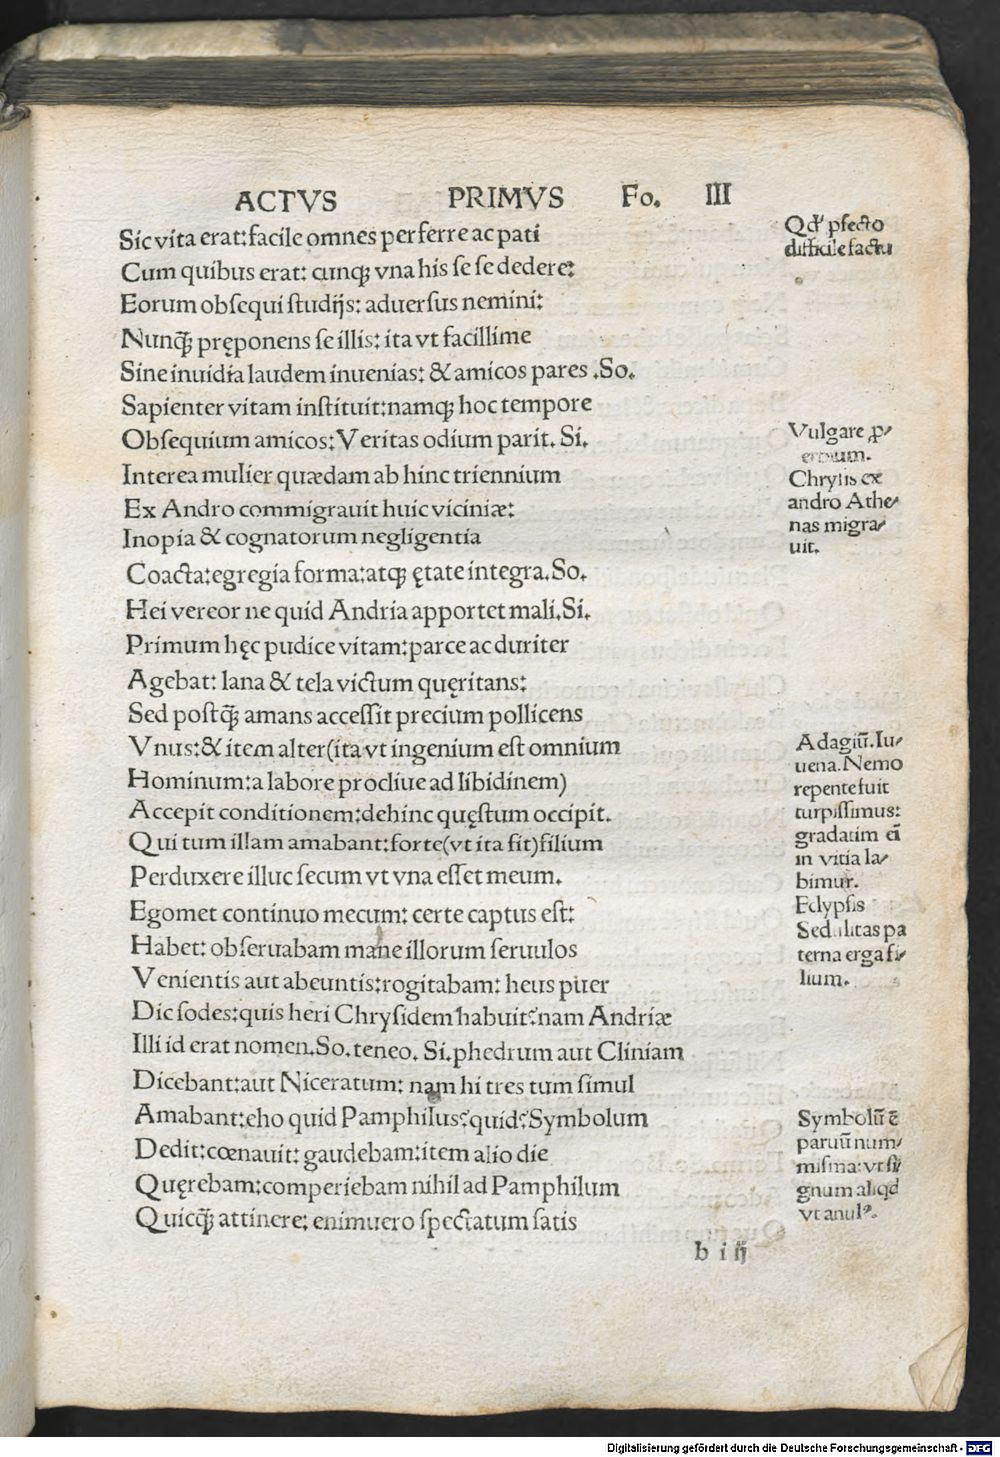 ACTVS PRIMVS Fo. III
Sic vita erat: facile omnes perferre ac pati
Cum quibus erat: cunqꝫ vna his se se dedere:
Eorum obsequi studijs: aduersus nemini:
Nunq̃ꝫ pręponens se illis: ita vt facillime
Sine inuidia laudem inuenias: & amicos pares .So.
Sapienter vitam instituit: namqꝫ hoc tempore
Obsequium amicos: Veritas odium parit. Si.
Interea mulier quædam ab hinc triennium
Ex Andro commigrauit huic viciniæ:
Inopia & cognatorum negligentia
Coacta: egregia forma: atqꝫ ętate integra. So.
Hei vereor ne quid Andria apportet mali. Si.
Primum hęc pudice vitam: parce ac duriter
Agebat: lana & tela victum quęritans:
Sed postq̃ꝫ amans accessit precium pollicens
Vnus: & item alter (ita vt ingenium est omnium
Hominum: a labore procliue ad libidinem)
Accepit conditionem: dehinc quęstum occipit.
Qui tum illam amabant: forte (vt ita fit) filium
Perduxere illuc secum vt vna esset meum.
Egomet continuo mecum: certe captus est:
Habet: obseruabam mane illorum seruulos
Venientis aut abeuntis: rogitabam: heus puer
Dic sodes: quis heri Chrysidem habuit? nam Andriæ
Illi id erat nomen. So. teneo. Si. phedrum aut Cliniam
Dicebant: aut Niceratum: nam hi tres tum simul
Amabant: eho quid Pamphilus? quid? Symbolum
Dedit: cœnauit: gaudebam: item alio die
Quęrebam: comperiebam nihil ad Pamphilum
Quicq̃ꝫ attinere: enimuero spectatum satis
b iij
Qd' ꝓfecto
difficile factu
Vulgare ꝓ/
erbium.
Chrysis ex
andro Athe/
nas migra/
uit.
Adagiū. Iu/
uena. Nemo
repente fuit
turpissimus:
gradatim eī
in vitia la/
bimur.
Eclypsis
Sedulitas pa
terna erga fi/
lium.
Symbolū ē
paruū num/
misma: vt si/
gnum aliqd
vt anulꝰ.
Digitalisierung gefördert durch die Deutsche Forschungsgemeinschaft - DFG